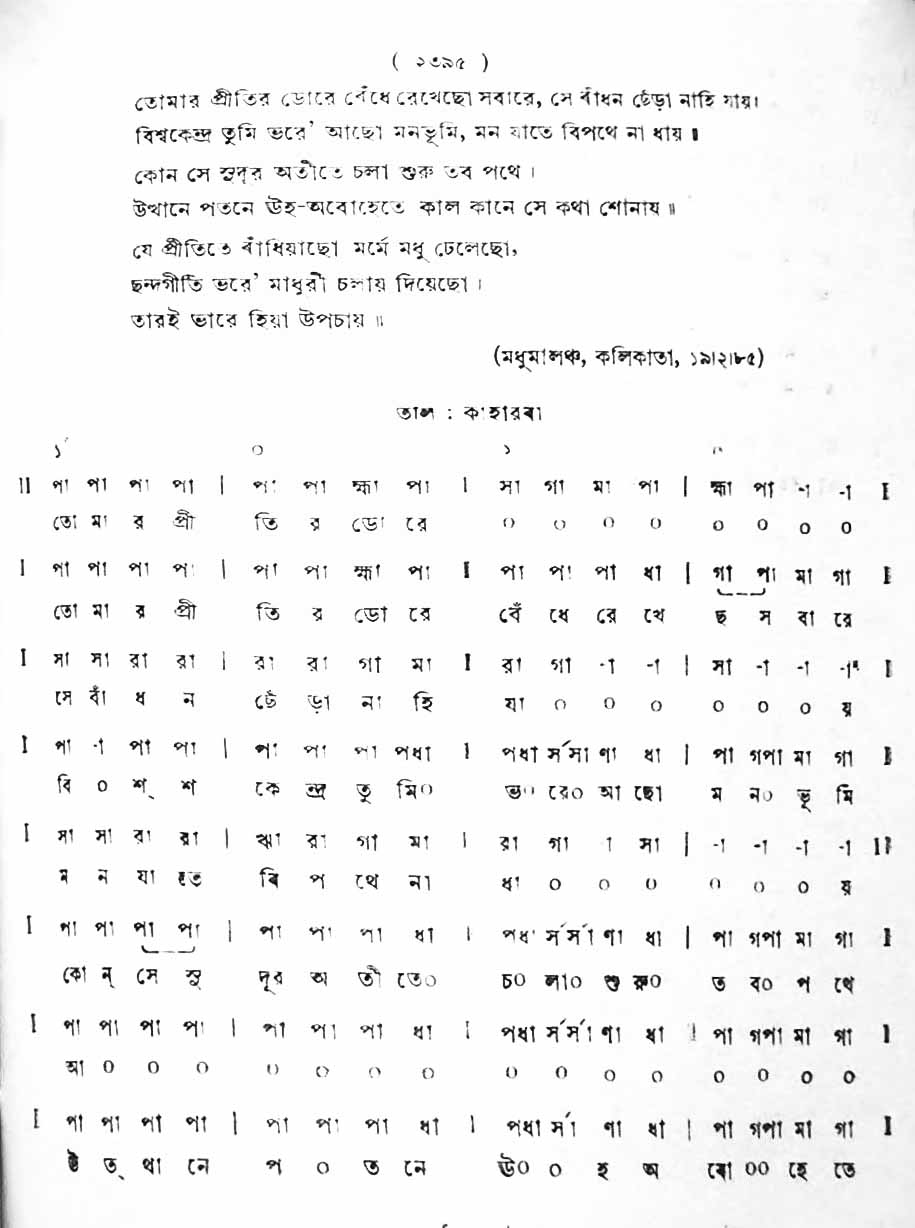 ( ২৩৯৫ )
তোমার প্রীতির ডোরে বেঁধে রেখেছো সবারে, সে বাঁধন ছেঁড়া নাহি যায়।
বিশ্বকেন্দ্র তুমি ভরে' আছো মনভূমি, মন যাতে বিপথে না ধায় ॥
কোন সে সুদূর অতীতে চলা শুরু তব পথে ।
উত্থানে পতনে ঊহ-অবোহেতে কাল কানে সে কথা শোনায় ॥
যে প্রীতিতে বাঁধিয়াছো মর্মে মধু ঢেলেছো,
ছন্দগীতি ভরে' মাধুরী চলায় দিয়েছো ।
তারই ভারে হিয়া উপচায় ॥
(মধুমালঞ্চ, কলিকাতা, ১৯।২।৮৫)
তাল : কাহারবা
১´ ০ ১ ৩
II পা পা পা পা | পা পা হ্মা পা I সা গা মা পা | হ্মা পা -া -া I
তো মা র প্রী তি র ডো রে ০ ০ ০ ০ ০ ০ ০ ০
I পা পা পা পা | পা পা হ্মা পা I পা পা পা ধা | গা পা মা গা I
তো মা র প্রী তি র ডো রে বেঁ ধে রে খে ছ স বা রে
I সা সা রা রা | রা রা গা মা I রা গা -া -া | সা -া -া -া I
সে বাঁ ধ ন ছেঁ ড়া না হি যা ০ ০ ০ ০ ০ ০ য়
I পা -া পা পা | পা পা পা পধা I পধা র্সর্সা ণা ধা | পা গপা মা গা I
বি ০ শ্ শ কে ন্দ্র তু মি০ ভ০ রে০ আ ছো ম ন০ ভূ মি
I সা সা রা রা | ঋা রা গা মা I রা গা -া সা | -া -া -া -া II
ম ন যা তে বি প থে না ধা ০ ০ ০ ০ ০ ০ য়
I পা পা পা পা | পা পা পা ধা I পধা র্সর্সা ণা ধা | পা গপা মা গা I
কো ন্ সে সু দূর অ তী তে০ চ০ লা০ শু রু০ ত ব০ প থে
I পা পা পা পা | পা পা পা ধা I পধা র্সর্সা ণা ধা | পা গপা মা গা I
আ ০ ০ ০ ০ ০ ০ ০ ০ ০ ০ ০ ০ ০ ০ ০
I পা পা পা পা | পা পা পা ধা I পধা র্সা ণা ধা | পা গপা মা গা I
উ ত্ থা নে প ০ ত নে ঊ০ ০ হ অ বো ০০ হে তে